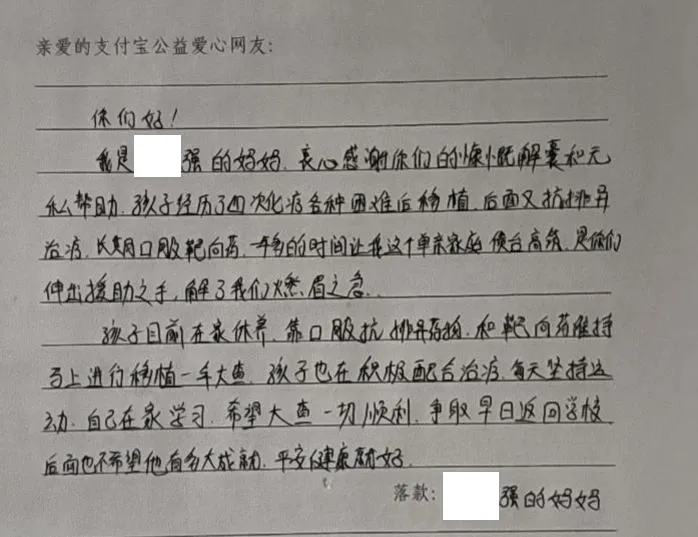 亲爱的支付宝公益爱心网友:
你们好!
我是 强的妈妈、衷心感谢你们的慷慨解囊和无
私帮助、孩子经历了四次化疗各种困难后移植、后面又抗排异
治疗、长期口服靶向药、一年多的时间让我这个单亲家庭债台高筑、是你们
伸出援助之手,解了我们燃眉之急.
孩子目前在家休养、靠口服抗排异药物、和靶向药维持
马上进行移植一年大查、孩子也在积极配合治疗、每天坚持运
动、自己在家学习、希望大查一切顺利、争取早日返回学校
后面也不希望他有多大成就、平安健康就好.
落款: 强的妈妈